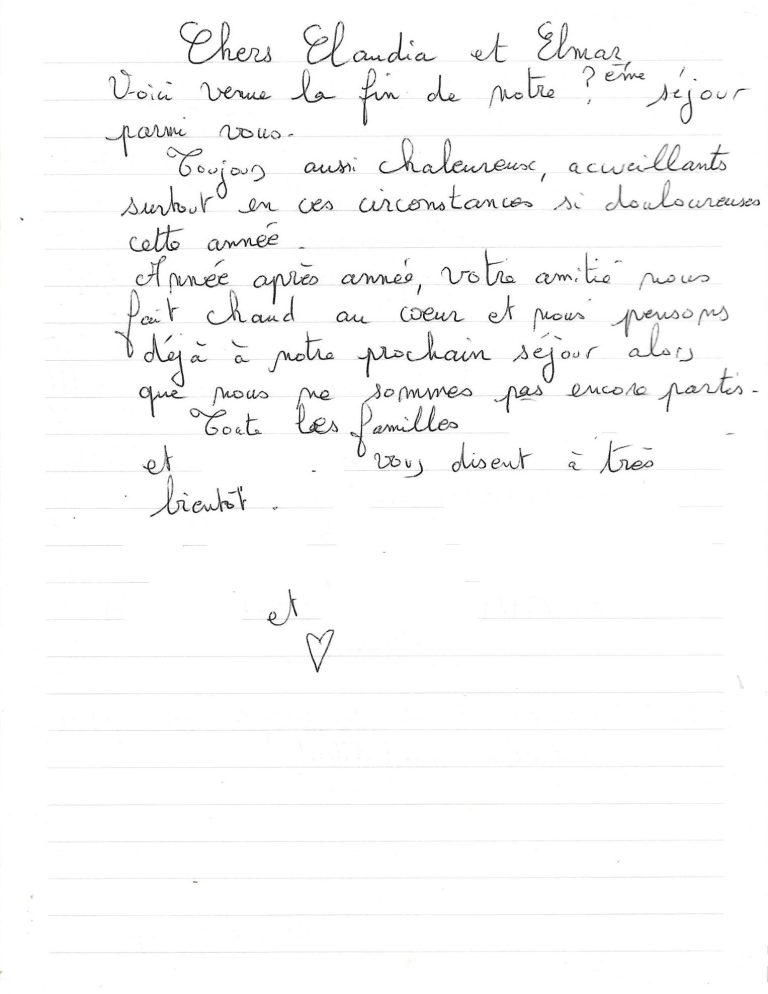 Chers Claudia et Elmar,
Voici venue la fin de notre ?ème séjour
parmi vous.
Toujours aussi chaleureux, acueillants
surtout en ces circonstances si douloureuses
cette année.
Année après année, votre amitié nous
fait chaud au coeur et nous pensons
déjà à notre prochain séjour alors
que nous ne sommes pas encore partis.
Toute les familles
et . vous disent à très
bientôt.
et